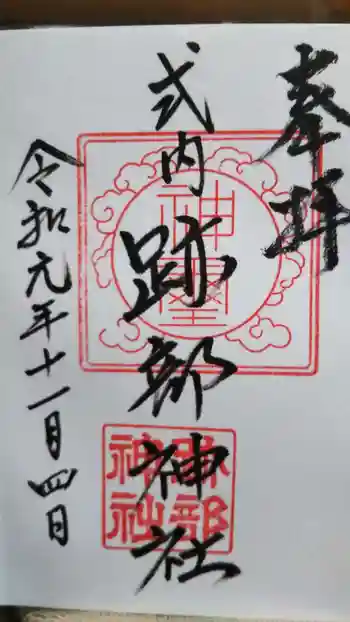 奉拝
式内 跡部神社
令和元年十一月四日
神璽
跡部
神社